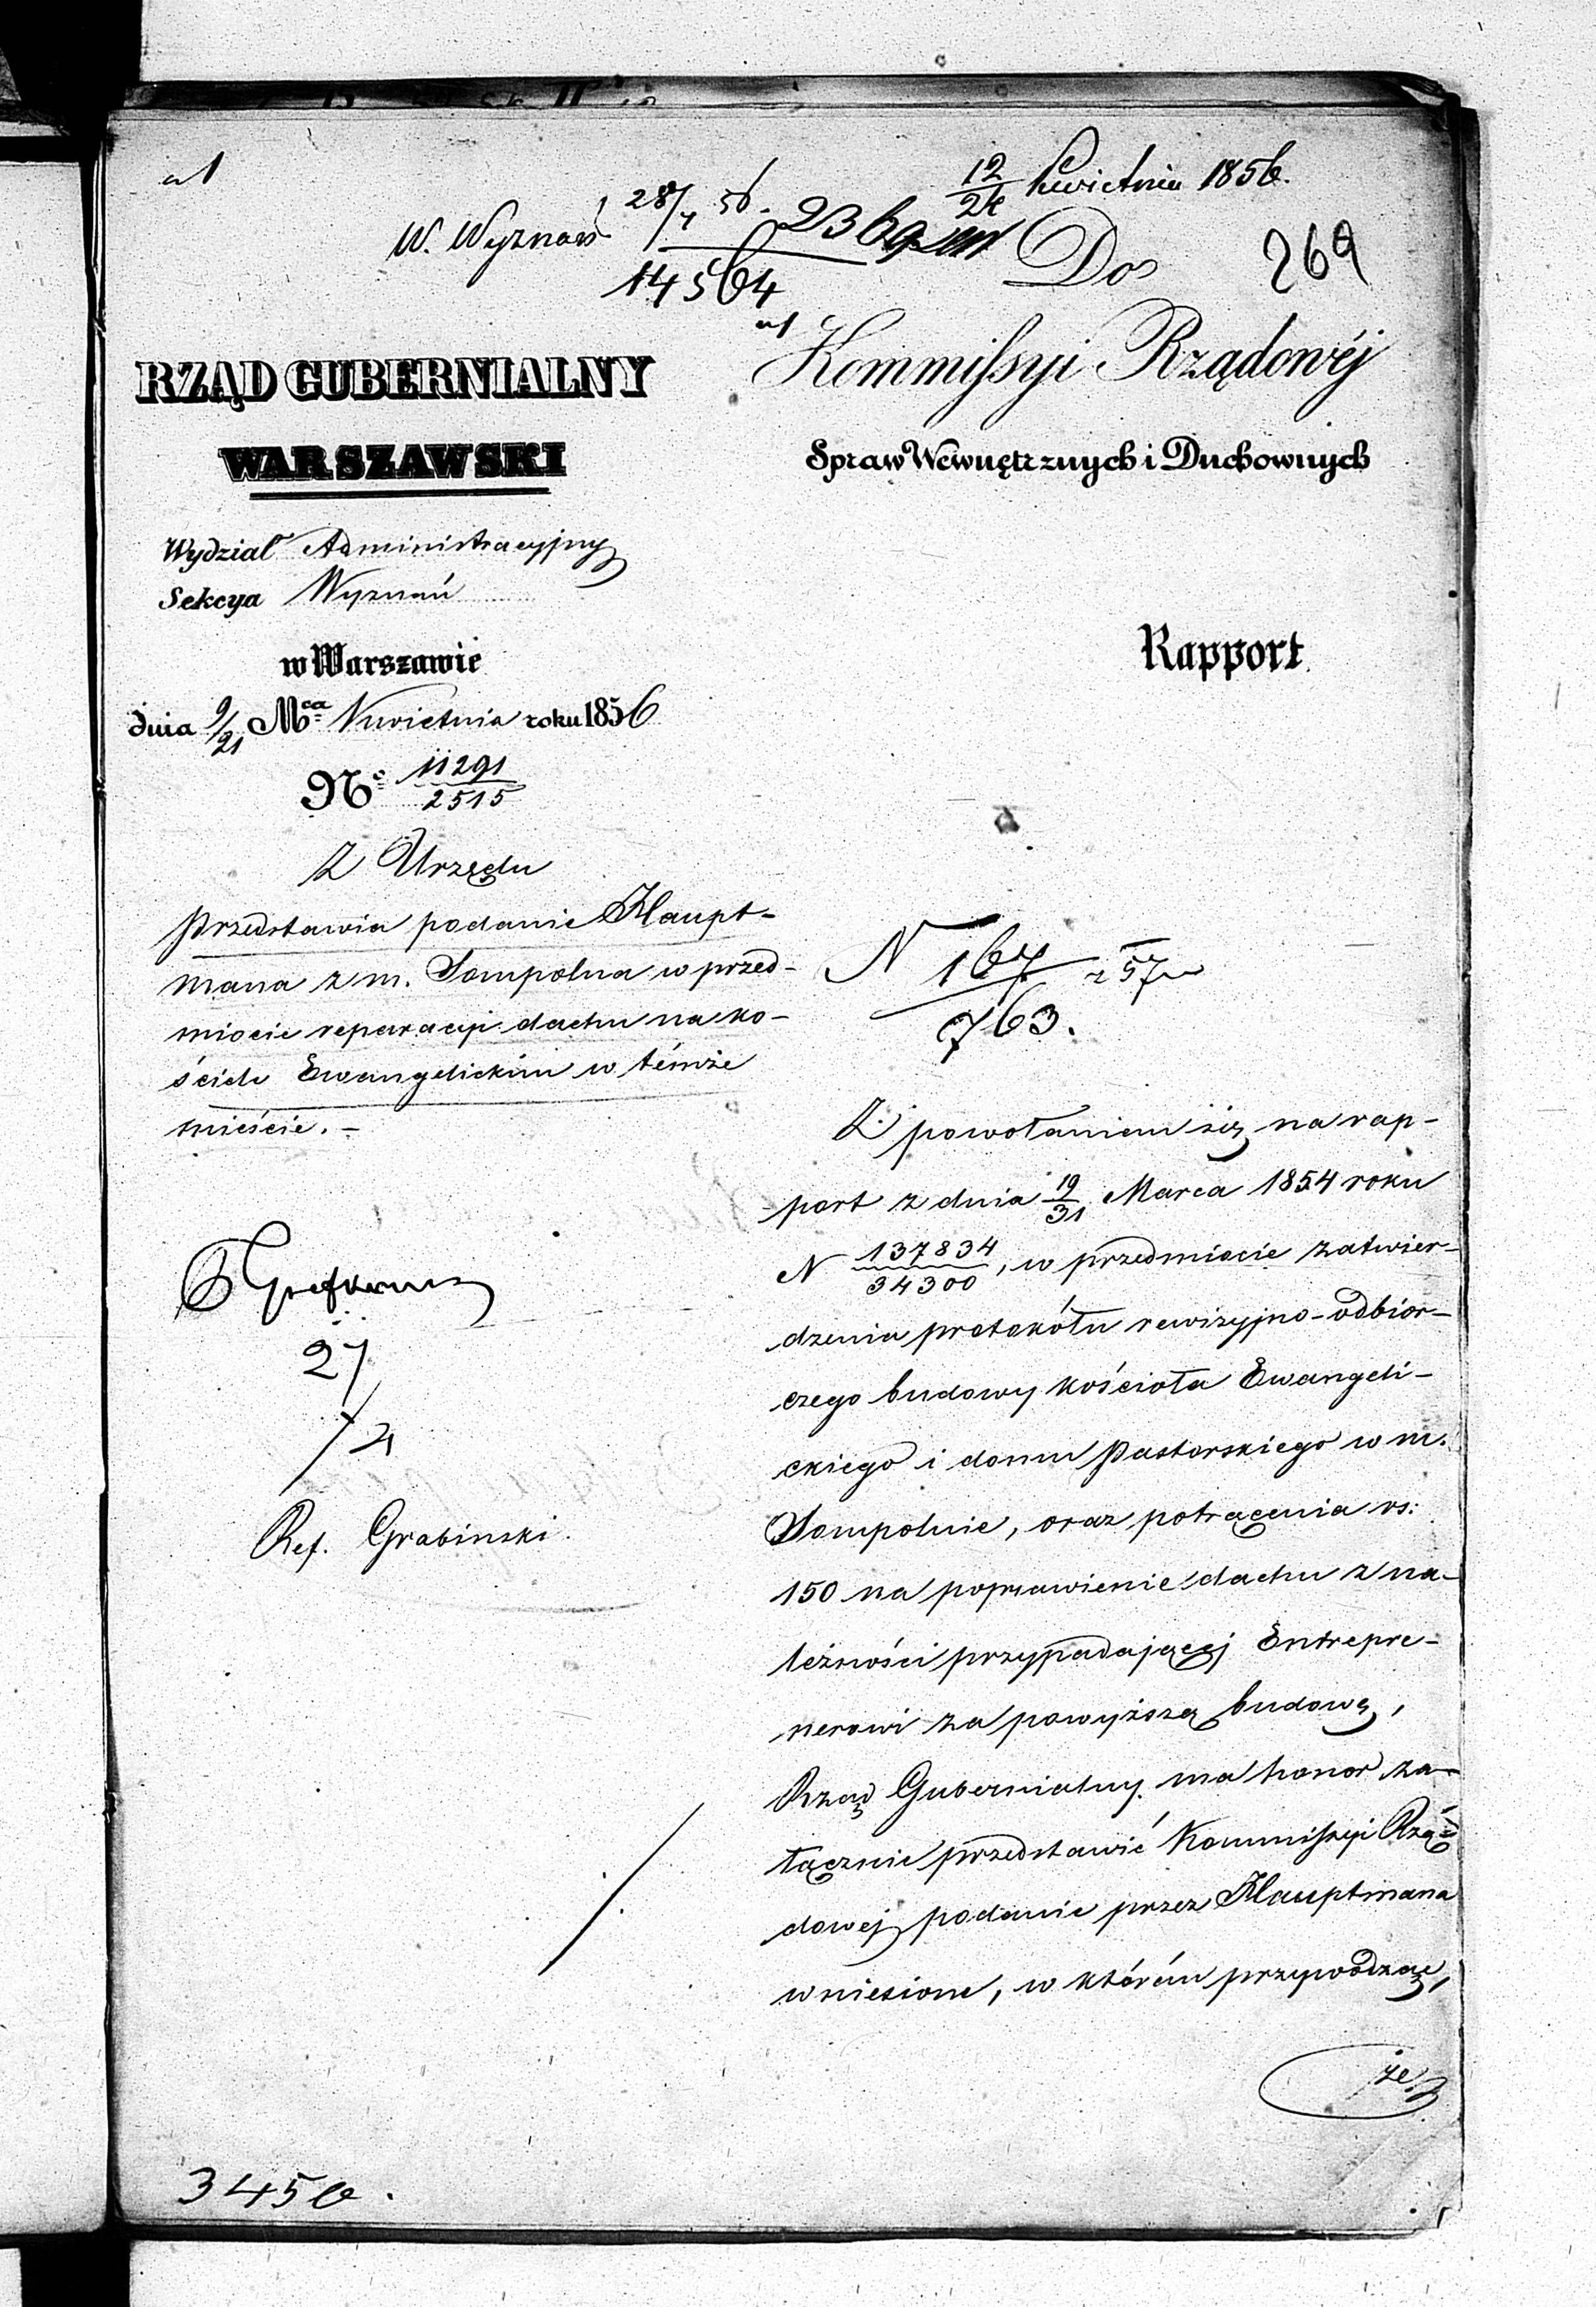 12/24 Kwietnia 1856.
W. Wyznań 28/4 56. 2369
14564
269
Do
Kommissyi Rządowéj
Spraw Wewnętrznych i Duchownych
RZĄD GUBERNIALNY
WARSZAWSKI
Wydział Administracyjny
Sekcya Wyznań
w Warszawie
dnia 9/21 Mca Kwietnia roku 1856
No 11291/2515
Rapport
Z Urzędu
przedstawia podanie Haupt-
mana z m. Sompolna w przed-
miocie reparacyi dachu na ko-
ściele Ewangelickim w témże
mieście. -
N 167/763. z 57
27
/4
Ref. Grabinski
Z powołaniem się na rap-
port z dnia 19/31 Marca 1854 roku
N 137834/34300, w przedmiocie zatwier-
dzenia protokółu rewizyjno-odbior-
czego budowy kościoła Ewangeli-
ckiego i domu Pastorskiego w m.
Sompolnie, oraz potrącenia rs:
150 na poprawienie dachu z na-
leżności przypadającej Entrepre-
nerowi za powyższą budowę,
Rząd Gubernialny ma honor za-
łącznie przedstawić Kommissyi Rzą-
dowej podanie przez Hauptmana
wniesione, w którém przywodząc,
że
3456.